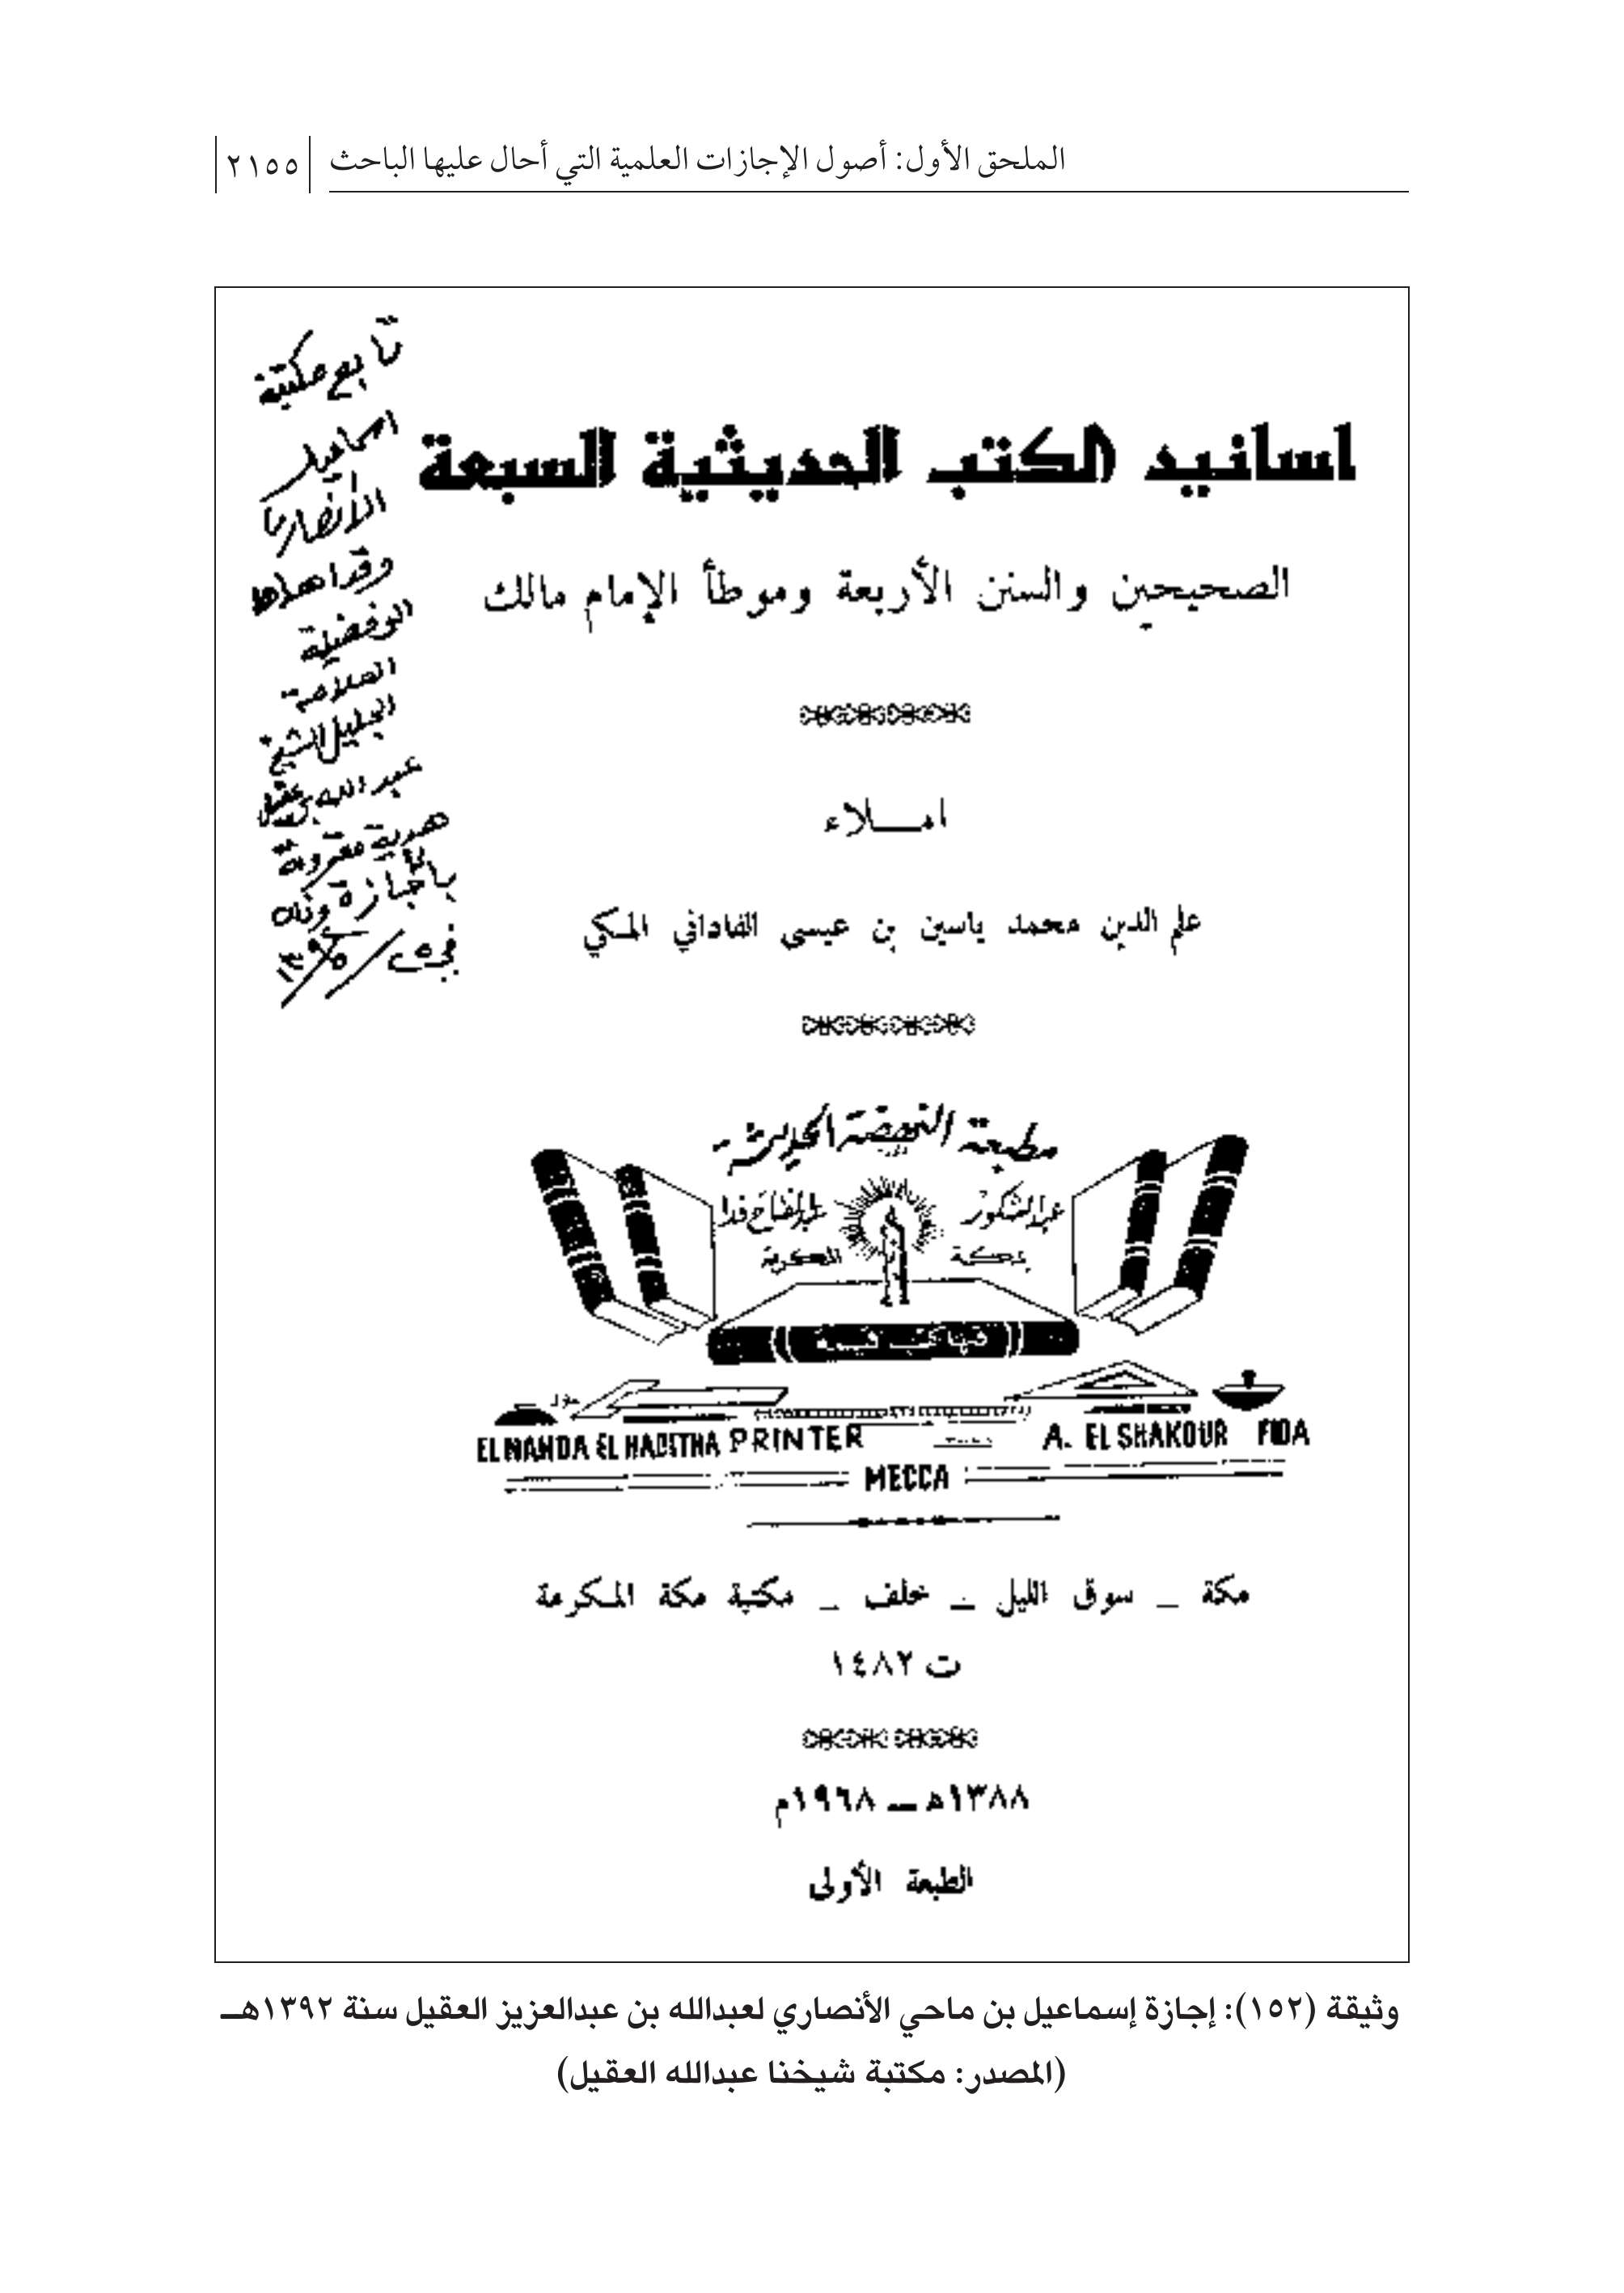 الملحق الأول: أصول الإجازات العلمية التي أحال عليها الباحث
٢١٥٥
تابع مكتبة
اسماعيل
الأنصاري
وقد اهداها
لفضيلة
العلامة
الجليل الشيخ
عبد الله بن عقيل
هدية مقرونة
بالإجازة وذلك
في
اسانيد الكتب الحديثية السبعة
الصحيحين والسنن الأربعة وموطأ الإمام مالك
امـــلاء
علم الدين محمد ياسين بن عيسى الفاداني المكي
مطبعة النهضة الحديثة
عبد الشكور عبد الفتاح فدا
بمكة المكرمة
EL NAHDA EL HADITHA PRINTER A. EL SHAKOUR FIDA
MECCA
مكة _ سوق الليل _ خلف _ مكتبة مكة المكرمة
ت ١٤٨٢
١٣٨٨هـ ــ ١٩٦٨م
الطبعة الأولى
وثيقة (١٥٢): إجازة إسماعيل بن ماحي الأنصاري لعبدالله بن عبدالعزيز العقيل سنة ١٣٩٢هـ
(المصدر: مكتبة شيخنا عبدالله العقيل)